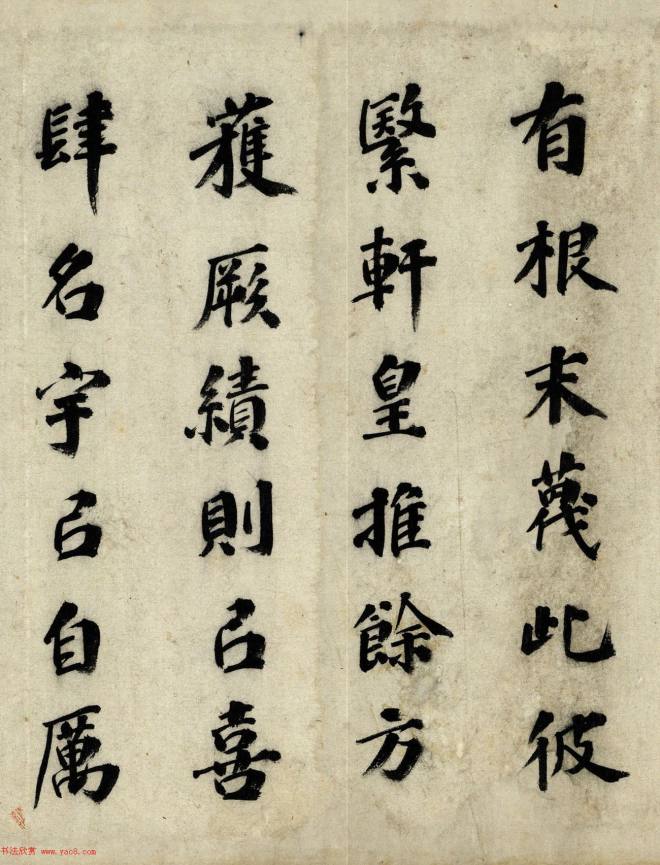 有根末蔑此彼
繄軒皇推餘方
獲厥績則㠯喜
肆名宇㠯自厲
书法欣赏 www.yac8.com